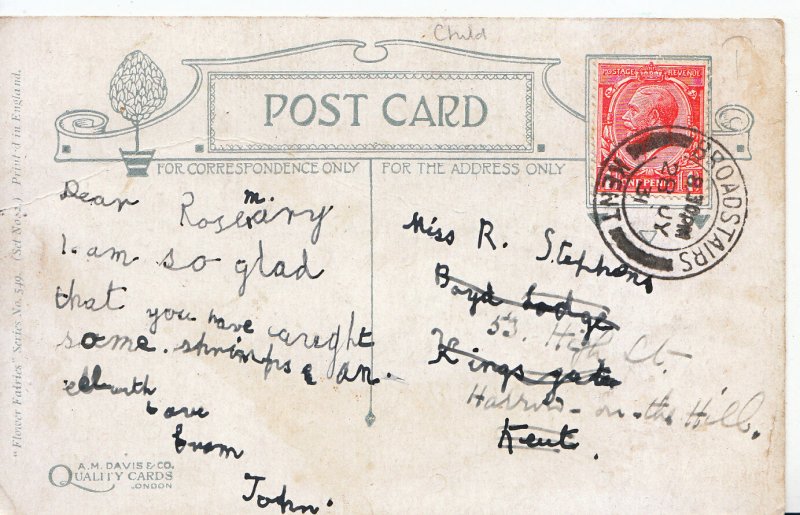 Child
POST CARD
FOR CORRESPONDENCE ONLY
FOR THE ADDRESS ONLY
"Flower Fairies" Series No. 549. (Set No. 82.) Printed in England.
POSTAGE REVENUE
ONE PENNY
BROADSTAIRS
8 30PM
28 JY
31
KENT
Dear Rosemary
I am so glad
that you have caught
some shrimps & an
ell with
Love
from
John.
Miss R. Stephens
Boyd Lodge
53. High St.
Kings gate
Harrow-on-the Hill.
Kent.
A.M. DAVIS & CO.
QUALITY CARDS
LONDON